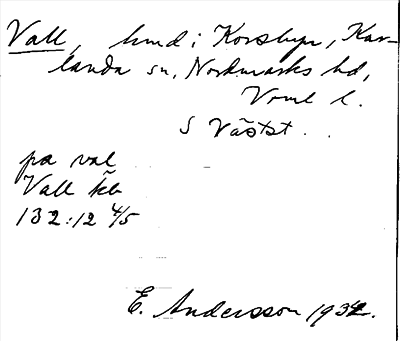 Vall, hmd i Korsbyn, Kar-
landa sn, Nordmarks hd,
Vrml l.
S Västst..
på val
Vall kb
132:12 4/5
E. Andersson 1932.